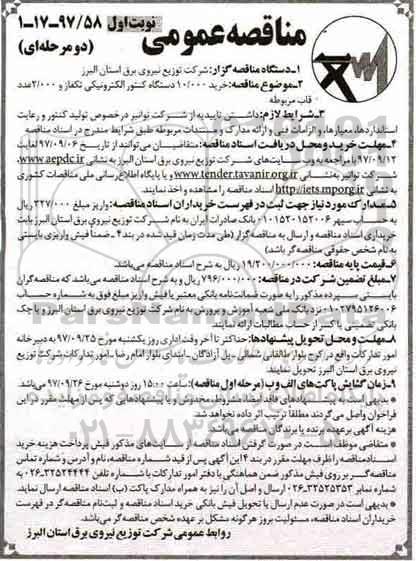 مناقصه عمومی
نوبت اول ۹۷/۵۸-۱۷-۱
(دو مرحله‌ای)
۱-دستگاه مناقصه گزار: شرکت توزیع نیروی برق استان البرز
۲-موضوع مناقصه: خرید ۱۰/۰۰۰ دستگاه کنتور الکترونیکی تکفاز و ۲/۰۰۰عدد
قاب مربوطه
۳-شرایط لازم: داشتن تاییدیه از شرکت توانیر در خصوص تولید کنتور و رعایت
استانداردها، معیارها، و الزامات فنی و ارائه مدارک و مستندات مربوطه طبق شرایط مندرج در اسناد مناقصه
۴-مهلت خرید و محل دریافت اسناد مناقصه: متقاضیان می‌توانند از تاریخ ۹۷/۰۹/۰۶ لغایت
۹۷/۰۹/۱۲ با مراجعه به وب سایت‌های شرکت توزیع نیروی برق استان البرز به نشانی www.aepdc.ir،
شرکت توانیر به نشانی www.tender.tavanir.org.ir و یا پایگاه اطلاع رسانی ملی مناقصات کشوری
به نشانی http://iets.mporg.ir اسناد مناقصه را مشاهده و اخذ نمایند.
۵-مدارک مورد نیاز جهت ثبت در فهرست خریداران اسناد مناقصه: واریز مبلغ ۳۲۷/۰۰۰ ریال
به حساب سپهر ۰۱۰۱۵۲۰۱۵۲۰۰۶ بانک صادرات ایران به نام شرکت توزیع نیروی برق استان البرز بابت
خریداری اسناد مناقصه و ارسال به مناقصه گزار (طی مدت زمان قید شده در بند۴ ـ ضمناً فیش واریزی بایستی
به نام شخص حقوقی مناقصه‌گر باشد)
۶-قیمت پایه مناقصه: ۱۹/۲۰۰/۰۰۰/۰۰۰ ریال به شرح اسناد مناقصه می‌باشد.
۷-مبلغ تضمین شرکت در مناقصه: ۷۹۶/۰۰۰/۰۰۰ ریال و به شرح اسناد مناقصه می‌باشد که مناقصه گران
بایستی سپرده مذکور را به صورت ضمانت نامه بانکی معتبر یا فیش واریز مبلغ فوق به شماره حساب
۰۱۰۲۷۹۵۱۲۶۰۰۶ نزد بانک ملی شعبه آموزش و پرورش به نام شرکت توزیع نیروی برق استان البرز و یا چک
بانکی تضمینی یا کسر از حساب مطالبات ارائه نمایند.
۸-مهلت و محل تحویل پیشنهادها: حداکثر تا آخر وقت اداری روز یکشنبه مورخ ۹۷/۰۹/۲۵ به دبیرخانه
امور تدارکات واقع در کرج بلوار طالقانی شمالی ـ پل آزادگان ـ ابتدای بلوار امام رضا ـ امور تدارکات شرکت توزیع
نیروی برق استان البرز تحویل نمایند.
۹-زمان گشایش پاکت‌های الف و ب (مرحله اول مناقصه): ساعت ۱۵۰۰ روز دوشنبه مورخ ۹۷/۰۹/۲۶ می‌باشد.
* بدیهی است به پیشنهادهای فاقد امضاء، مشروط، مخدوش و یا پیشنهادهایی که پس از مهلت مقرر در این
فراخوان واصل می‌گردند مطلقا ترتیب اثر داده نخواهد شد.
هزینه آگهی بر عهده برنده یا برندگان مناقصه می‌باشد.
* متقاضی موظف است در صورت گرفتن اسناد مناقصه از سایت‌های مذکور فیش پرداخت هزینه خرید
اسناد مناقصه را ظرف مهلت مقرر در بند ۴ این آگهی پس از قید شماره مناقصه، نام و آدرس و شماره تماس
مناقصه‌گر بر روی فیش مذکور ضمن هماهنگی با دفتر امور تدارکات با شماره تلفن ۳۲۵۲۴۴۴۴-۰۲۶ به
شماره نمابر ۳۲۵۲۵۳۵۳-۰۲۶ ارسال و اصل آن را نیز به همراه مدارک پاکت (ب) اسناد مناقصه ارسال نماید.
* بدیهی است در صورت عدم ارسال یا تحویل فیش بانکی خرید اسناد مناقصه و ثبت‌نام مناقصه‌گر در فهرست
خریداران اسناد مناقصه، مسئولیت بروز هرگونه مشکل بر عهده شخص مناقصه‌گر می‌باشد.
روابط عمومی شرکت توزیع نیروی برق استان البرز